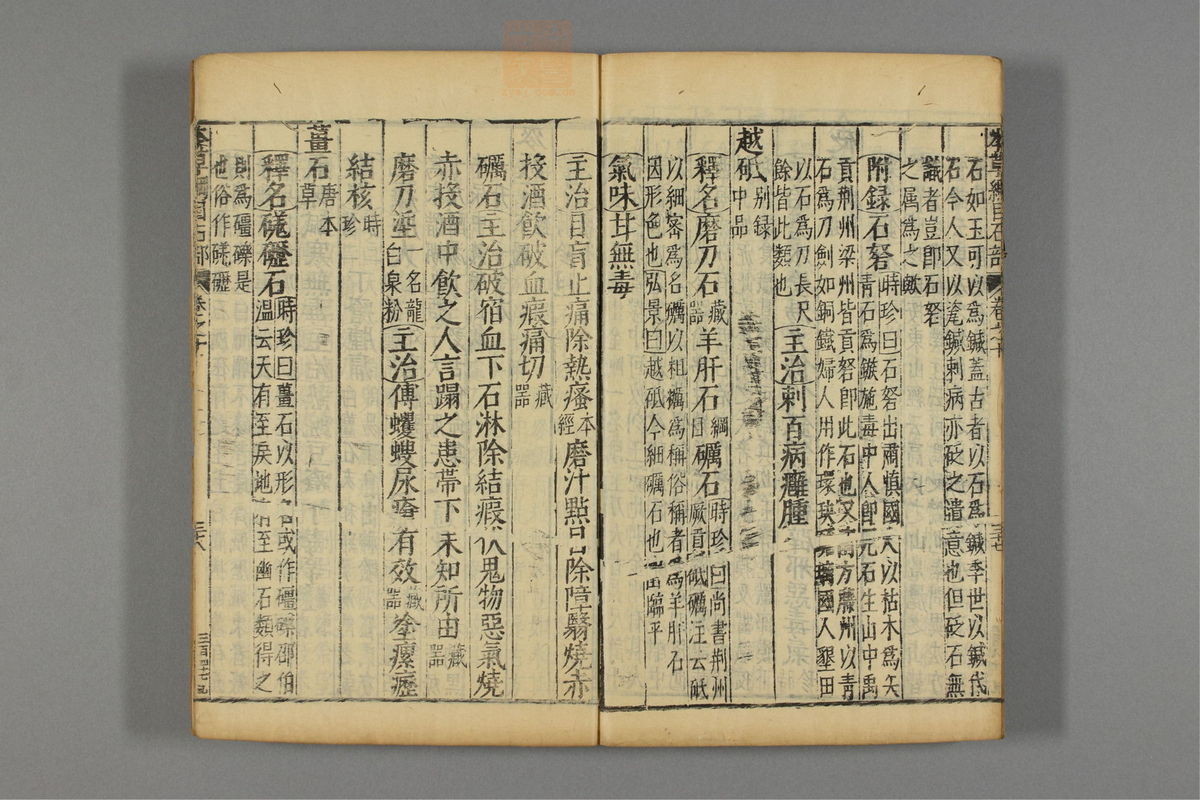 本草綱目石部 卷之十 三十七
石如玉可以爲鍼蓋古者以石爲鍼季世以鍼代
石今人又以瓷鍼刺病亦砭之遺意也但砭石無
識者豈即石砮
之属爲之歟
附録石砮時珍曰石砮出肅慎國人以枯木爲矢
青石爲鏃施毒中人即死石生山中禹
貢荆州梁州皆貢砮即此石也又南方藤州以青
石爲刀劍如銅鐵婦人用作環玦琉璃國人墾田
以石爲刀長尺
餘皆此類也
主治刺百病癰腫
越砥别録中品
釋名磨刀石藏器羊肝石綱目礪石時珍曰尚書荆州
厥貢砥礪注云砥
以細密爲名礪以粗礪爲稱俗稱者爲羊肝石
因形色也弘景曰越砥今細礪石也出臨平
氣味甘無毒
主治目盲止痛除熱瘙本經磨汁點目除障翳燒赤
投酒飲破血瘕痛切藏器
礪石主治破宿血下石淋除結瘕伏鬼物惡氣燒
赤投酒中飲之人言蹋之患帯下未知所由藏器
磨刀涳一名龍白泉粉主治傅蠼螋尿瘡有效藏器塗瘰癧
結核時珍
薑石唐本草
釋名礓𥗬石時珍曰薑石以形名或作礓礫邵伯
温云天有至戾地有至幽石類得之
則爲礓礫是
也俗作礓𥗬
本草綱目石部 卷之十 三十八